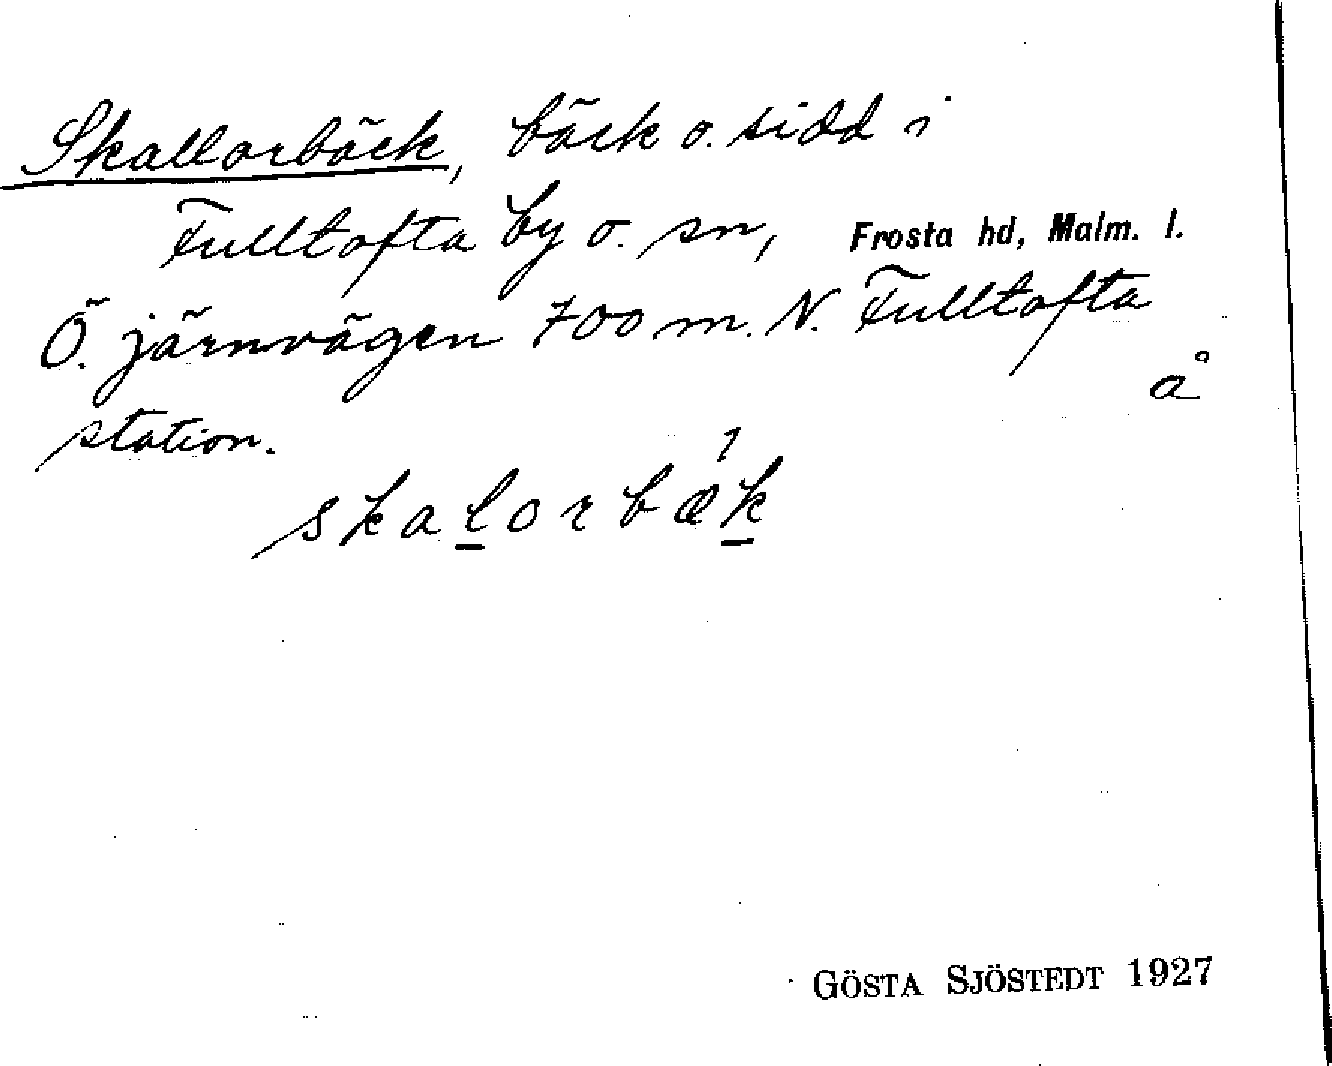 Skallorbäck, bäck o. sidd i
Fulltofta by o. sn, Frosta hd, Malm. l.
Ö. järnvägen 700 m. N. Fulltofta
å
station.
skalorbæk
GÖSTA SJÖSTEDT 1927